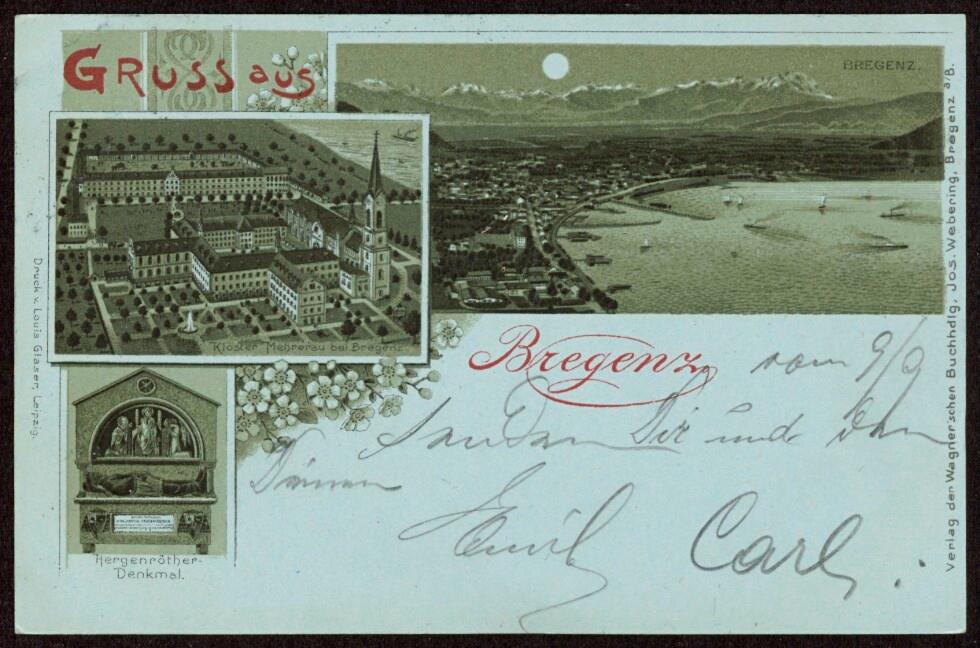 GRUSS aus
BREGENZ.
Kloster Mehrerau bei Bregenz.
Bregenz
vom 9/9
senden Dir und den
Deinen
Emil Carl.
Hergenröther-
Denkmal.
Druck v. Louis Glaser, Leipzig.
Verlag der Wagner'schen Buchhdlg, Jos. Webering, Bregenz a/B.